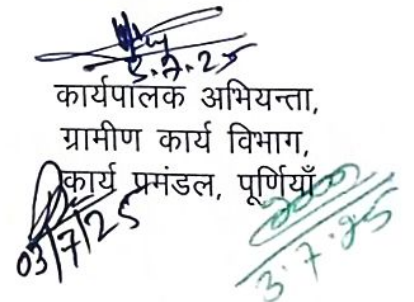 3.7.25
कार्यपालक अभियन्ता,
ग्रामीण कार्य विभाग,
कार्य प्रमंडल, पूर्णियाँ
03/7/25
3.7.25